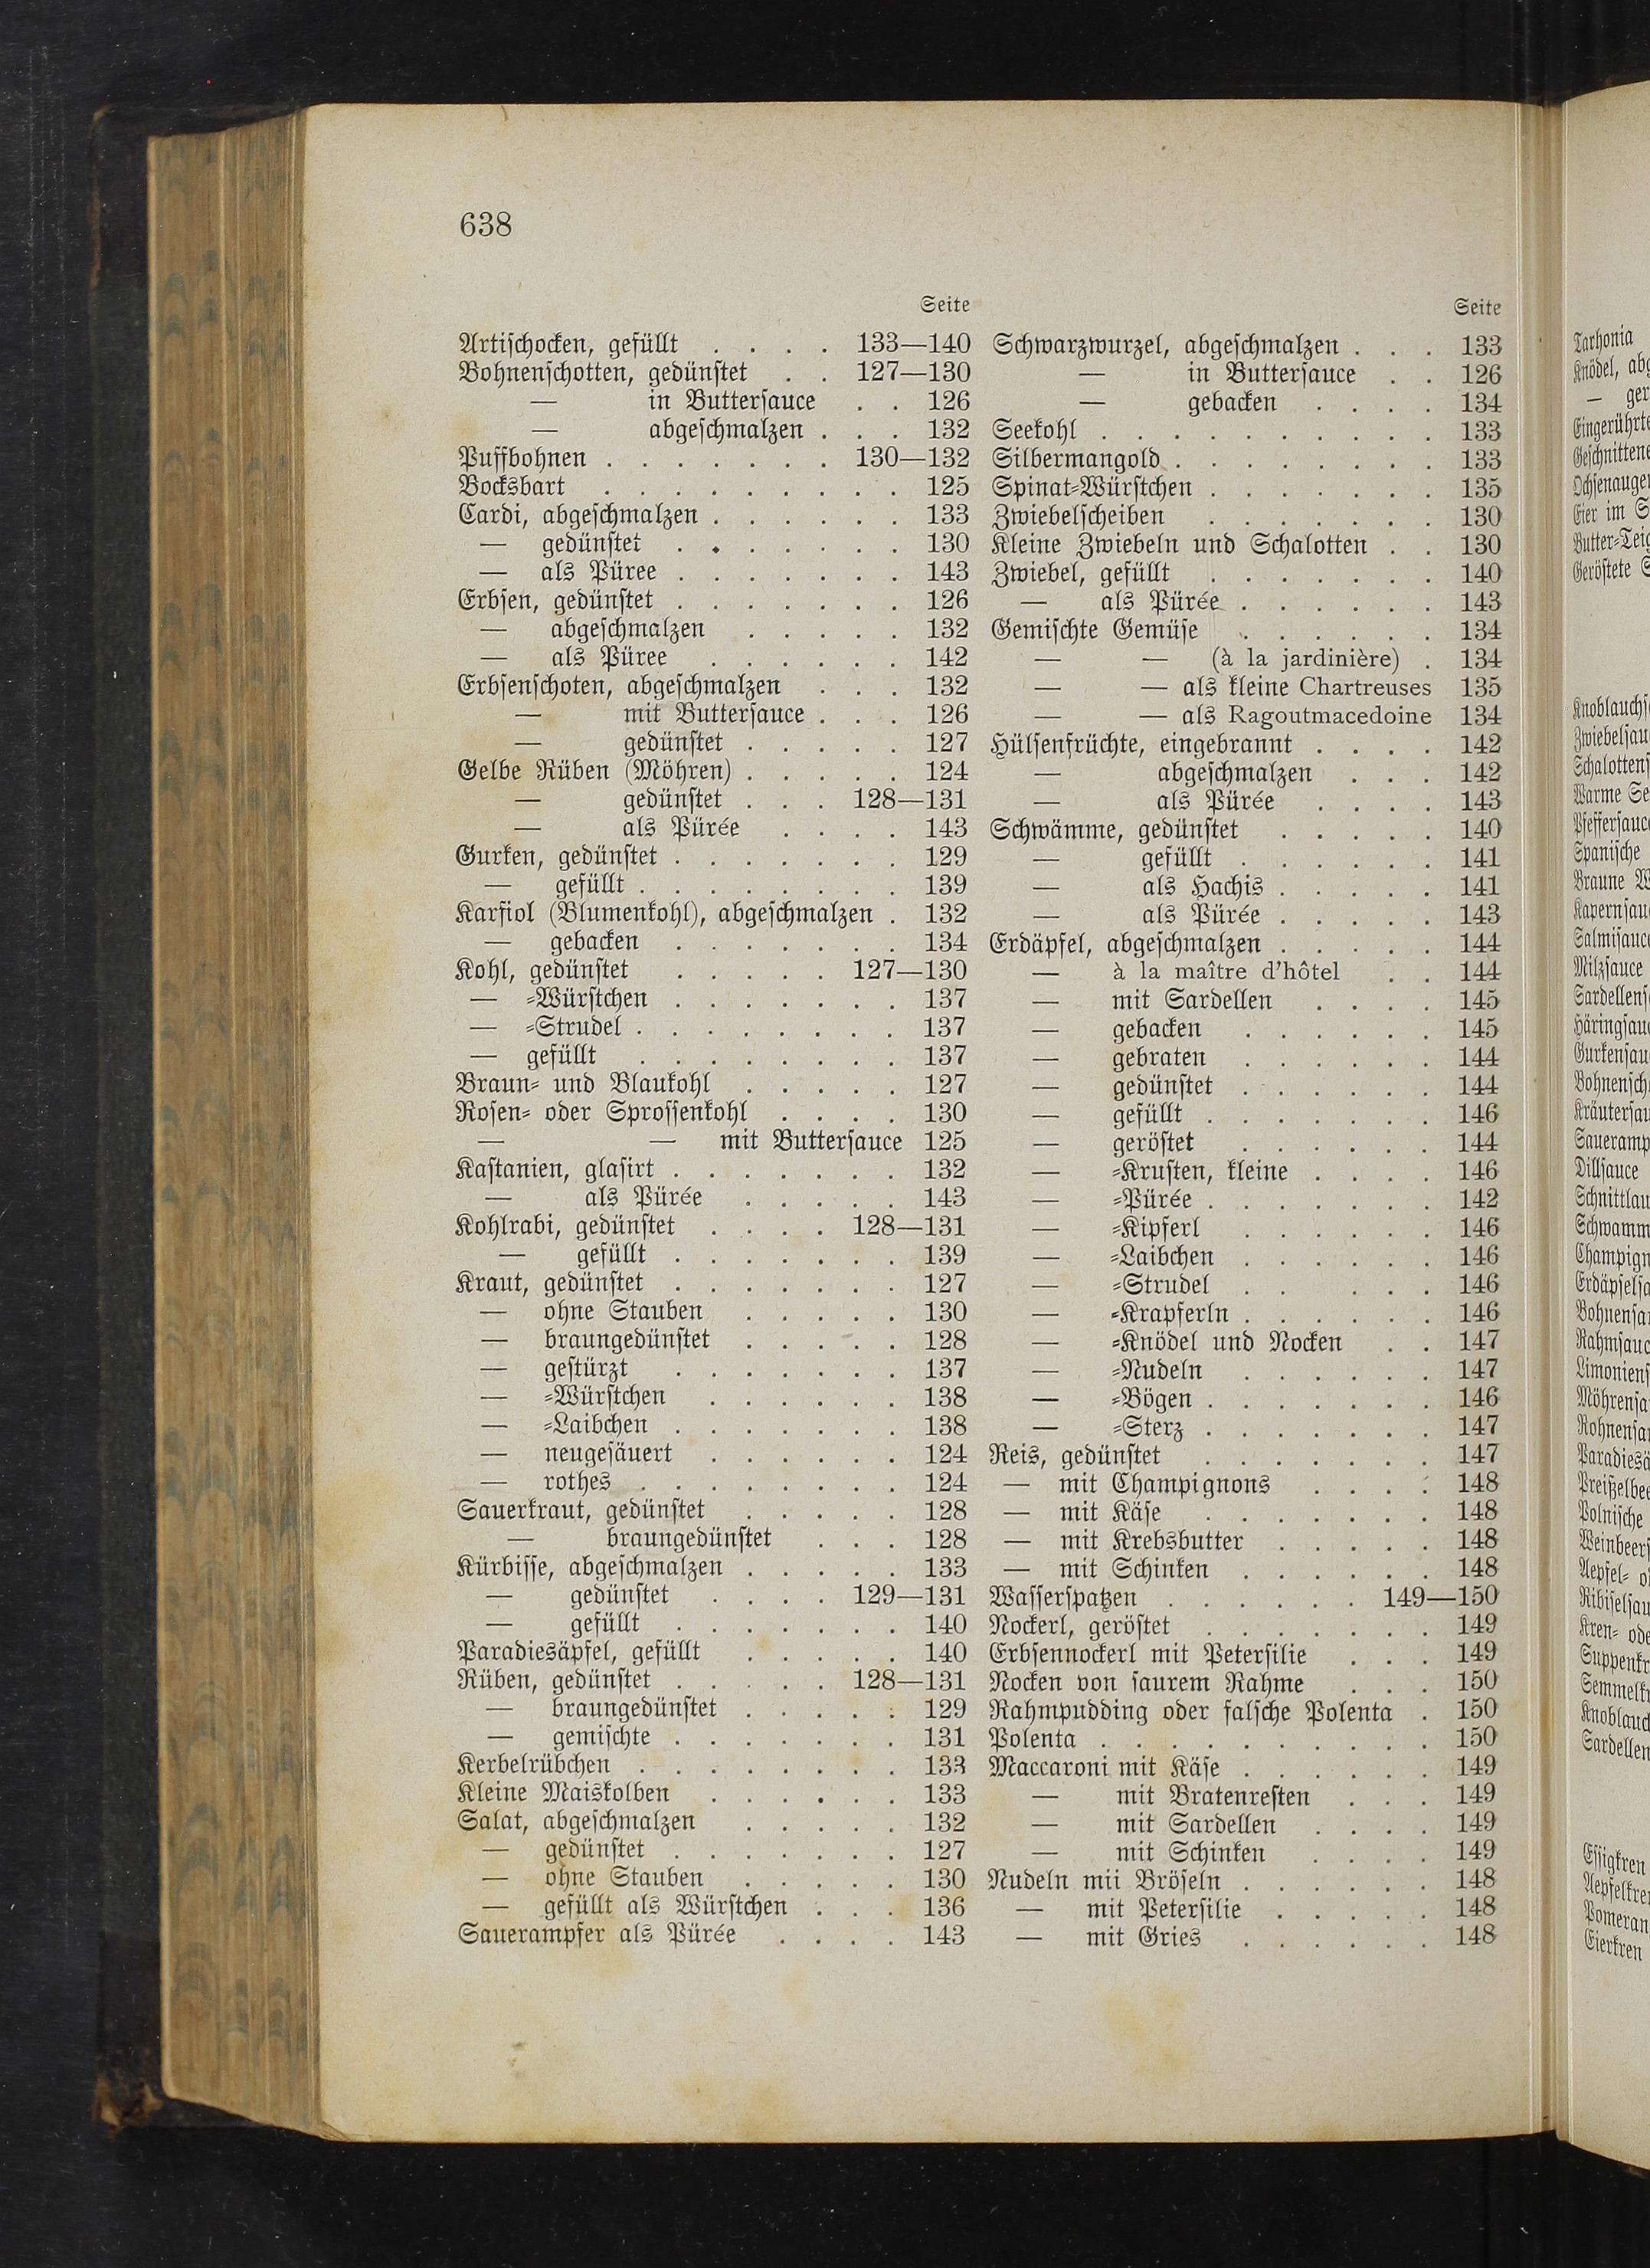 638
Seite
Artischocken, gefüllt . . . . 133—140
Bohnenschotten, gedünstet . . 127—130
— in Buttersauce . . 126
— abgeschmalzen . . . 132
Puffbohnen . . . . . . . 130—132
Bocksbart . . . . . . . . . 125
Cardi, abgeschmalzen . . . . . . 133
— gedünstet . . . . . . . 130
— als Püree . . . . . . . 143
Erbsen, gedünstet . . . . . . . 126
— abgeschmalzen . . . . . 132
— als Püree . . . . . . 142
Erbsenschoten, abgeschmalzen . . . 132
— mit Buttersauce . . . 126
— gedünstet . . . . . 127
Gelbe Rüben (Möhren) . . . . . 124
— gedünstet . . . 128—131
— als Pürée . . . . 143
Gurken, gedünstet . . . . . . . 129
— gefüllt . . . . . . . . 139
Karfiol (Blumenkohl), abgeschmalzen . 132
— gebacken . . . . . . . 134
Kohl, gedünstet . . . . . 127—130
— =Würstchen . . . . . . . 137
— =Strudel . . . . . . . . 137
— gefüllt . . . . . . . . 137
Braun= und Blaukohl . . . . . 127
Rosen= oder Sprossenkohl . . . . 130
— — mit Buttersauce 125
Kastanien, glasirt . . . . . . . 132
— als Pürée . . . . . 143
Kohlrabi, gedünstet . . . . 128—131
— gefüllt . . . . . . . 139
Kraut, gedünstet . . . . . . . 127
— ohne Stauben . . . . . 130
— braungedünstet . . . . . 128
— gestürzt . . . . . . . 137
— =Würstchen . . . . . . 138
— =Laibchen . . . . . . . 138
— neugesäuert . . . . . . 124
— rothes . . . . . . . . 124
Sauerkraut, gedünstet . . . . . 128
— braungedünstet . . . 128
Kürbisse, abgeschmalzen . . . . . 133
— gedünstet . . . . 129—131
— gefüllt . . . . . . . 140
Paradiesäpfel, gefüllt . . . . . 140
Rüben, gedünstet . . . . . 128—131
— braungedünstet . . . . . 129
— gemischte . . . . . . . 131
Kerbelrübchen . . . . . . . . 133
Kleine Maiskolben . . . . . . 133
Salat, abgeschmalzen . . . . . 132
— gedünstet . . . . . . . 127
— ohne Stauben . . . . . 130
— gefüllt als Würstchen . . . 136
Sauerampfer als Pürée . . . . 143
Seite
Schwarzwurzel, abgeschmalzen . . . 133
— in Buttersauce . . 126
— gebacken . . . . 134
Seekohl . . . . . . . . . . 133
Silbermangold . . . . . . . . 133
Spinat=Würstchen . . . . . . . 135
Zwiebelscheiben . . . . . . . 130
Kleine Zwiebeln und Schalotten . . 130
Zwiebel, gefüllt . . . . . . . 140
— als Pürée . . . . . . 143
Gemischte Gemüse . . . . . . 134
— — (à la jardinière) . 134
— — als kleine Chartreuses 135
— — als Ragoutmacedoine 134
Hülsenfrüchte, eingebrannt . . . . 142
— abgeschmalzen . . . 142
— als Pürée . . . . 143
Schwämme, gedünstet . . . . . 140
— gefüllt . . . . . . 141
— als Hachis . . . . . 141
— als Pürée . . . . . 143
Erdäpfel, abgeschmalzen . . . . . 144
— à la maître d'hôtel . . 144
— mit Sardellen . . . . 145
— gebacken . . . . . . 145
— gebraten . . . . . . 144
— gedünstet . . . . . . 144
— gefüllt . . . . . . . 146
— geröstet . . . . . . 144
— =Krusten, kleine . . . . 146
— =Pürée . . . . . . . 142
— =Kipferl . . . . . . 146
— =Laibchen . . . . . . 146
— =Strudel . . . . . . 146
— =Krapferln . . . . . . 146
— =Knödel und Nocken . . 147
— =Nudeln . . . . . . 147
— =Bögen . . . . . . . 146
— =Sterz . . . . . . . 147
Reis, gedünstet . . . . . . . 147
— mit Champignons . . . . 148
— mit Käse . . . . . . . 148
— mit Krebsbutter . . . . . 148
— mit Schinken . . . . . . 148
Wasserspatzen . . . . . . 149—150
Nockerl, geröstet . . . . . . . 149
Erbsennockerl mit Petersilie . . . 149
Nocken von saurem Rahme . . . 150
Rahmpudding oder falsche Polenta . 150
Polenta . . . . . . . . . . 150
Maccaroni mit Käse . . . . . . 149
— mit Bratenresten . . . 149
— mit Sardellen . . . . 149
— mit Schinken . . . . 149
Nudeln mii Bröseln . . . . . . 148
— mit Petersilie . . . . . 148
— mit Gries . . . . . . 148
Tarhonia
Knödel, abg
— ger
Eingerührte
Geschnittene
Ochsenauge
Eier im S
Butter=Teig
Geröstete S
Knoblauchs
Zwiebelsau
Schalottens
Warme Se
Pfeffersauce
Spanische
Braune W
Kapernsau
Salmisauce
Milzsauce
Sardellens
Häringsau
Gurkensau
Bohnensch
Kräutersau
Saueramp
Dillsauce
Schnittlau
Schwamm
Champign
Erdäpfelsa
Bohnensa
Rahmsauc
Limoniens
Möhrensa
Rohnensa
Paradiesä
Preißelbee
Polnische
Weinbeers
Aepfel= o
Ribiselsau
Kren= ode
Suppenkr
Semmelkr
Knoblauc
Sardellen
Essigkren
Aepfelkre
Pomeran
Eierkren